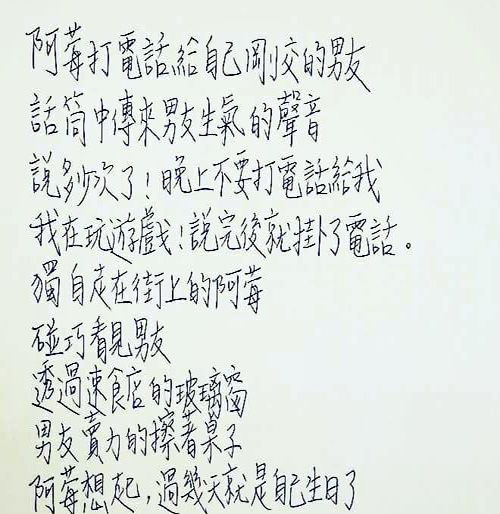 阿莓打電話給自己剛交的男友
話筒中傳來男友生氣的聲音
說多少次了！晚上不要打電話給我
我在玩遊戲！說完後就掛了電話。
獨自走在街上的阿莓
碰巧看見男友
透過速食店的玻璃窗
男友賣力的擦著桌子
阿莓想起，過幾天就是自己生日了